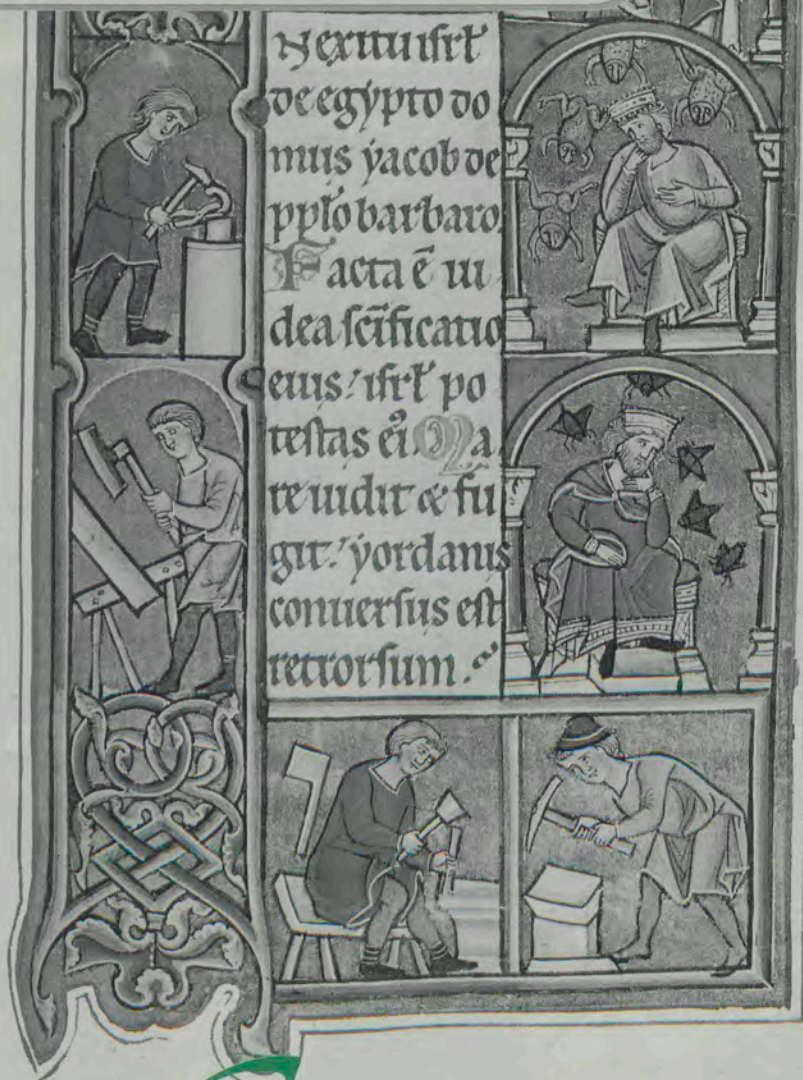 N exitu isrł
de egẏpto do
mus ẏacob de
ppło barbaro.
Facta ē iu
dea sc̄ificatio
eius / isrł po
testas eiꝰ. Ma
re uidit & fu
git / ẏordanis
conuersus est
retrorsum.